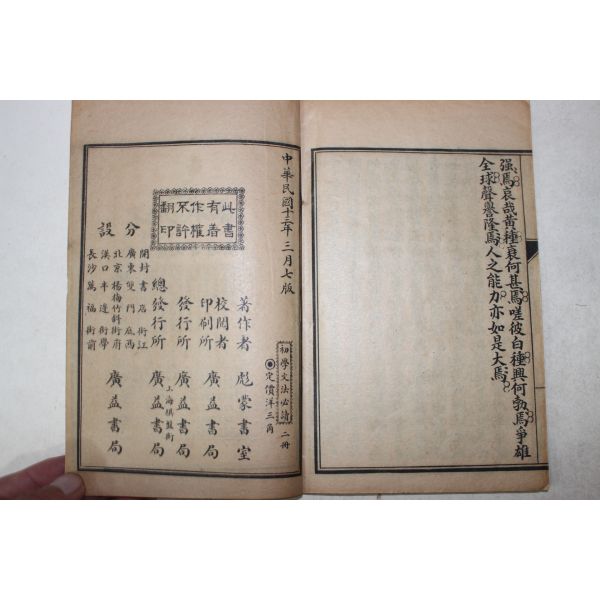 强馬哀哉黄種衰何甚馬嗟彼白種興何勃馬爭雄
全球聲譽隆馬人之能力亦如是大馬
中華民國十三年三月七版
初學文法必讀二冊
定價洋三角
此書
有著
作權
不許
翻印
著作者 彪蒙書室
校閱者 廣益書局
印刷所 廣益書局
發行所 廣益書局
上海棋盤街
總發行所 廣益書局
分設
開封書店街江
廣東雙門底西
北京楊梅竹斜街府
漢口半邊街學
長沙萬福街前
廣益書局